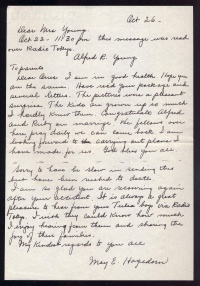 Oct 26 -
Dear Mrs Young
Oct 22 - 11:30 pm this message was read
over Radio Tokyo.
Alfred R. Young
To parents
Dear Ones: I am in good health. Hope you
are the same. Have recd your package and
several letters. The pictures were a pleasant
surprise. The kids are grown up so much
I hardly knew them. Congratulate Alfred
and Ruby on marriage. The fellows over
here pray daily we can come back. I am
looking forward to carrying out plans I
have made for us. God bless you all.
Sorry to have been slow in sending this
but have been rushed to death.
I am so glad you are recovering again
after your accident. It is always a great
pleasure to hear from your Tulsa boys via Radio
Tokyo. I wish they could know how much
I enjoy hearing from them and sharing the
joy of their families.
My kindest regards to you all
May E. Hagedorn